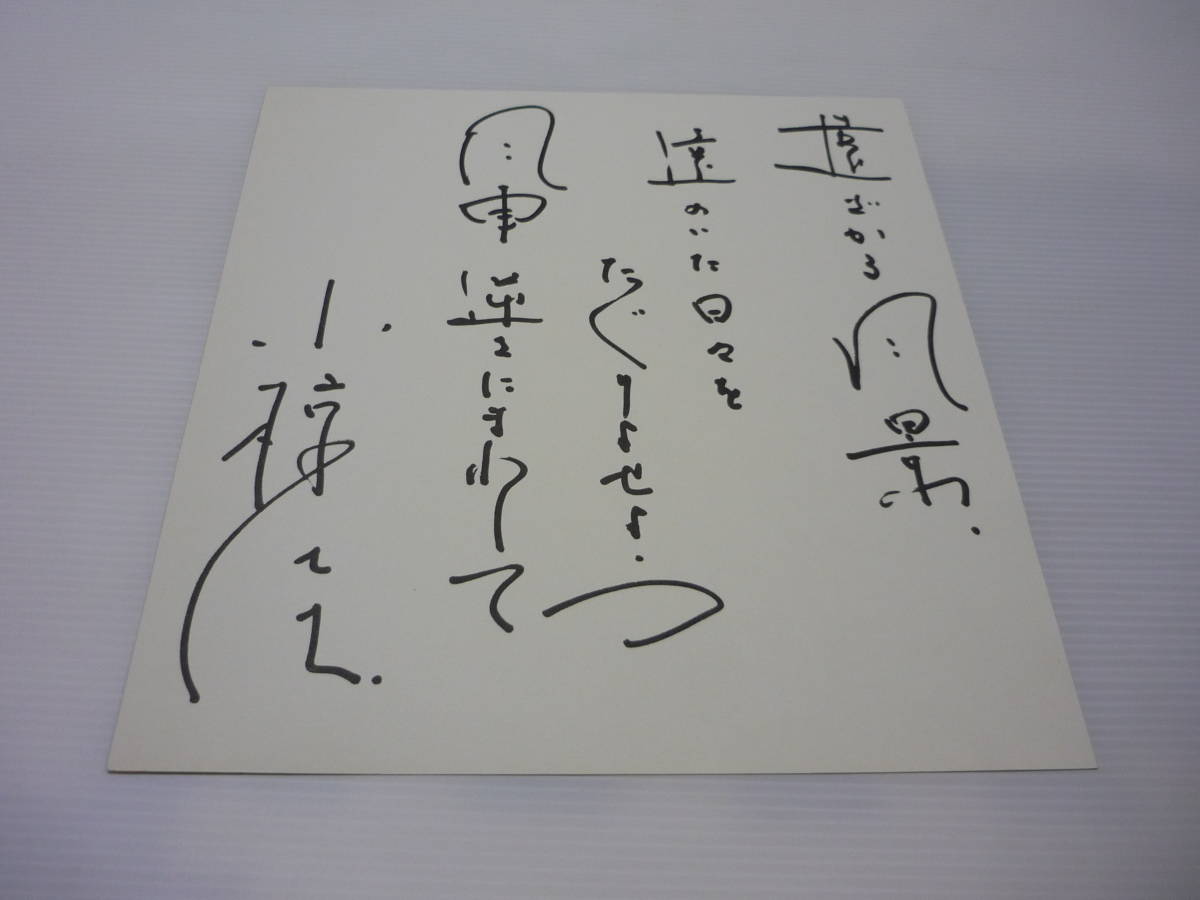 遠ざかる風景.
遠のいた日々を
たぐりよせよう
風車逆さにまわして
小椋佳.